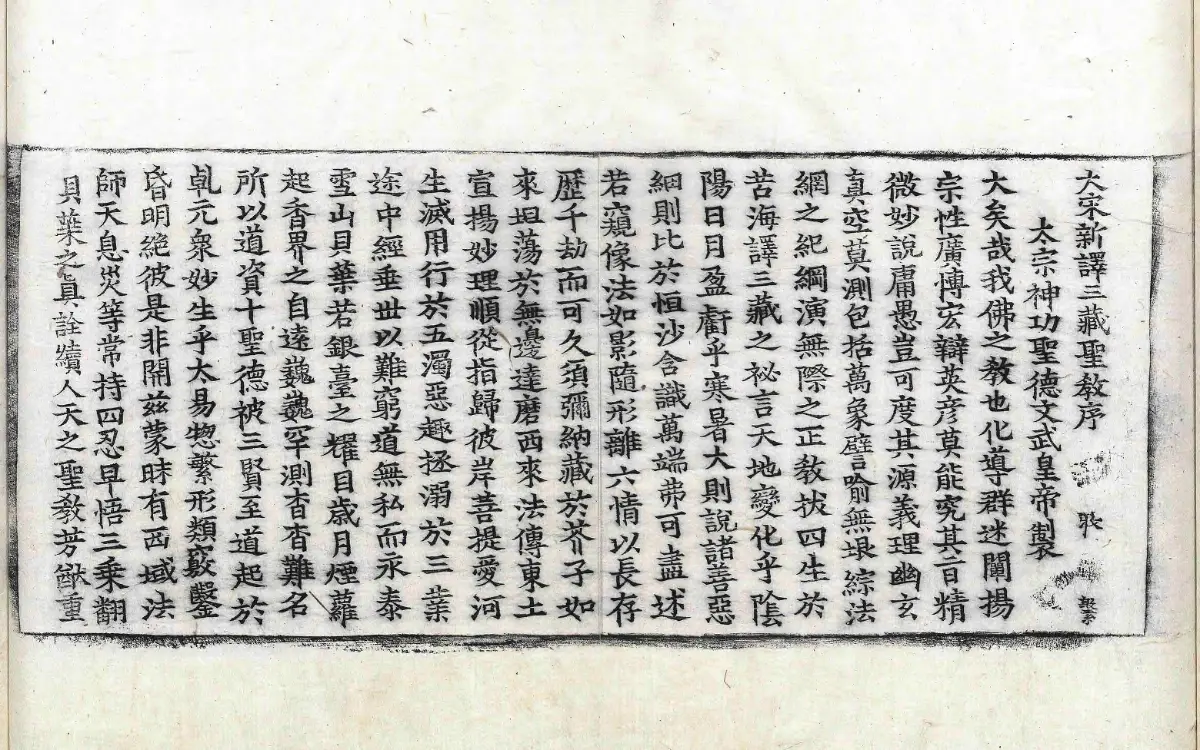 大宋新譯三藏聖教序
太宗神功聖德文武皇帝製
大矣哉我佛之教也化導群迷闡揚
宗性廣博宏辯英彦莫能究其旨精
微妙說庸愚豈可度其源義理幽玄
真空莫測包括萬象譬喻無垠綜法
網之紀綱演無際之正教拔四生於
苦海譯三藏之祕言天地變化乎陰
陽日月盈虧乎寒暑大則說諸善惡
細則比於恒沙含識萬端弗可盡述
若窺像法如影隨形離六情以長存
歷千劫而可久須彌納藏於芥子如
來坦蕩於無邊達磨西來法傳東土
宣揚妙理順從指歸彼岸菩提愛河
生滅用行於五濁惡趣拯溺於三業
途中經垂世以難窮道無私而永泰
雪山貝葉若銀臺之耀目歲月煙蘿
起香界之自遠巍巍罕測杳杳難名
所以道資十聖德被三賢至道起於
乹元衆妙生乎太易惣繁形類竅鑿
昏明絕彼是非開兹蒙昧有西域法
師天息災等常持四忍早悟三乘翻
貝葉之真詮續人天之聖教芳猷重